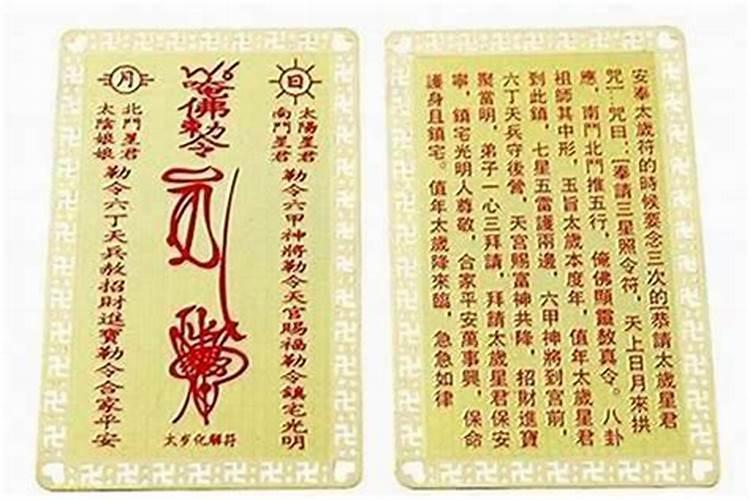 日
太陽星君
南鬥星君
勒令六甲神將勒令天官賜福勒令鎮宅光明
唵佛勅令
太歲化解符
月
北鬥星君
太陰娘娘
勒令六丁天兵赦招財進寶勒令合家平安
安奉太歲符的時候要念三次的[恭請太歲星君
咒]:咒曰:[奉請三星照令符,天上日月來拱
應,南鬥北鬥推五行,俺佛顯靈敖真令。八卦
祖師其中形,玉旨太歲本度年,值年太歲星君
到此鎮,七星五雷護兩邊,六甲神將到宮前,
六丁天兵守後營,天官賜富神共降,招財進寶
聚當明,弟子一心三拜請,拜請太歲星君保安
寧,鎮宅光明人尊敬,合家平安萬事興,保命
護身且鎮宅。值年太歲降來臨,急急如律